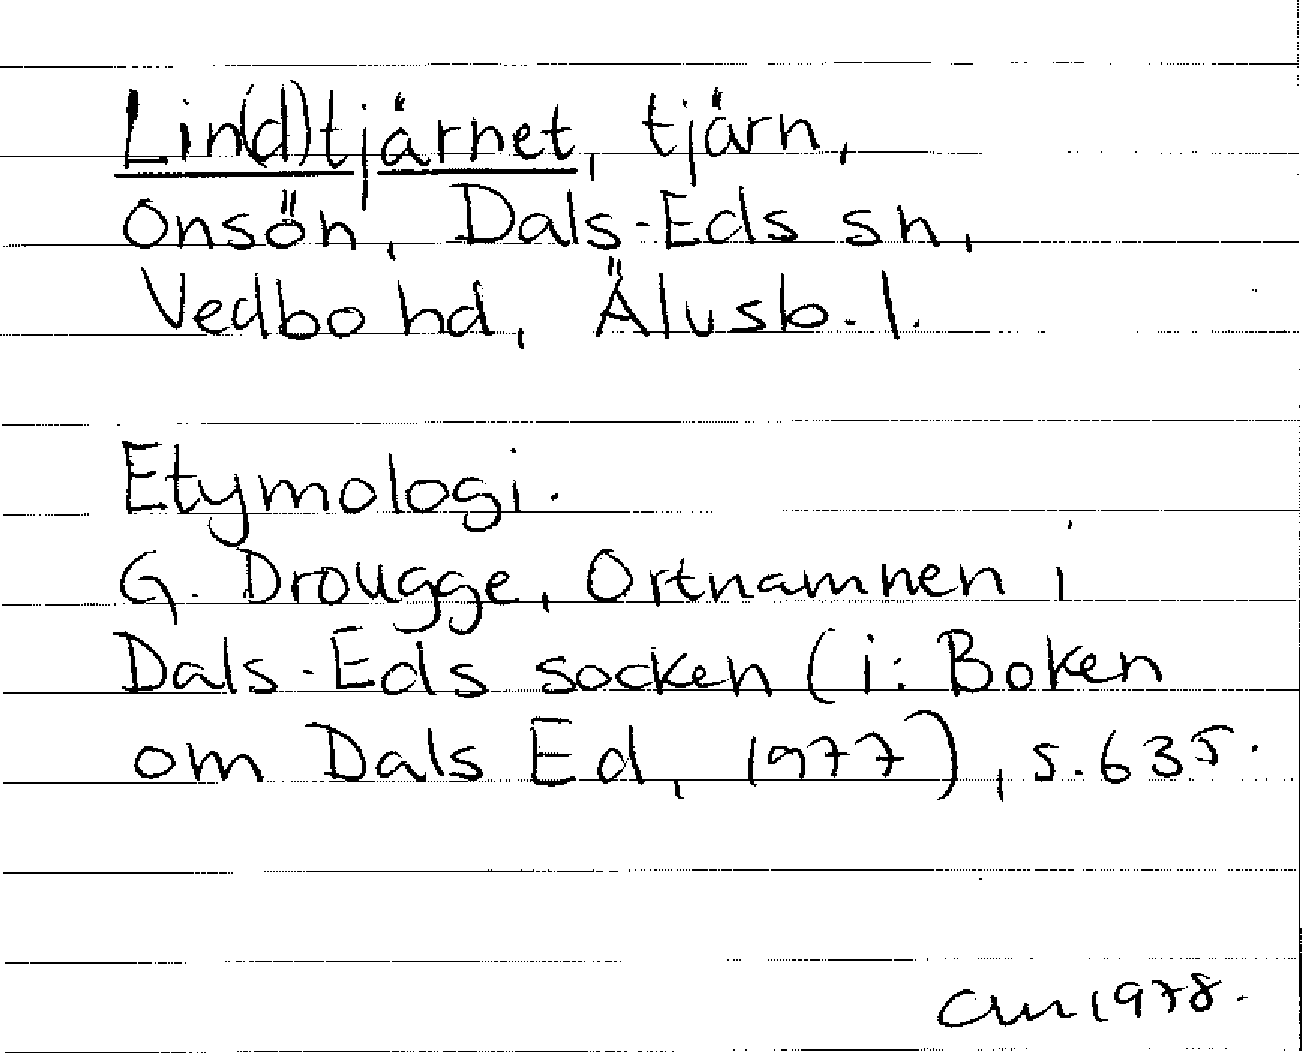 Lin(d)tjärnet, tjärn,
Onsön, Dals-Eds sn,
Vedbo hd, Älvsb. l.
Etymologi.
G. Drougge, Ortnamnen i
Dals-Eds socken (i: Boken
om Dals Ed, 1977), s. 635.
1978.